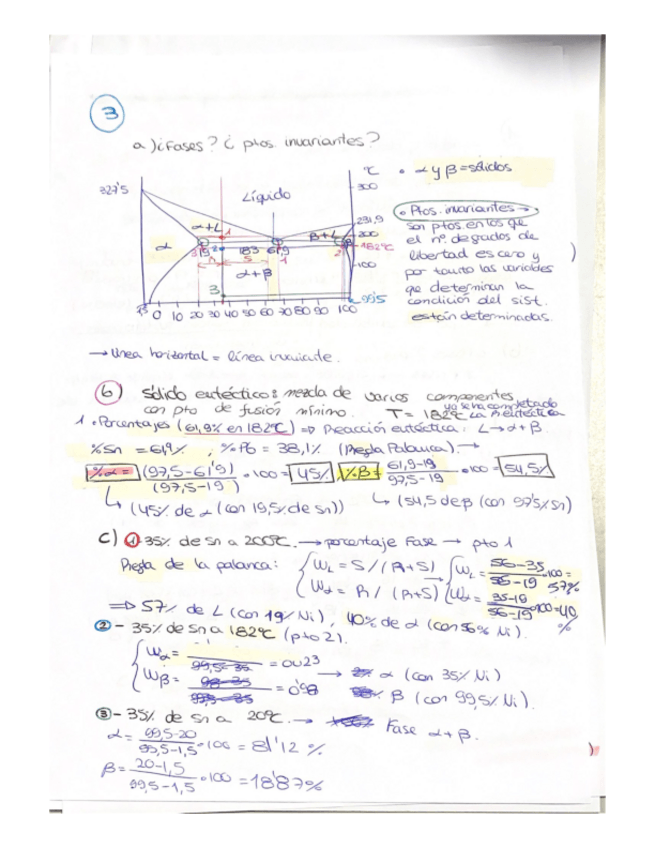 3
a) ¿Fases? ¿ ptos. invariantes?
327'5
Líquido
α+L
β+L
α
α+β
19
183
61,9
R
S
1
2
3
0 10 20 30 40 50 60 70 80 90 100
°C
300
231,9
200
182°C
100
99'5
• α y β = sólidos
• Ptos. invariantes →
son ptos. en los que
el nº de grados de
libertad es cero y
por tanto las variables
que determinan la
condición del sist.
están determinadas.
→ Línea horizontal = línea invariante.
b) Sólido eutéctico: mezcla de varios componentes
con pto de fusión mínimo. T = 182°C ya se ha completado la R eutéctica
1 • Porcentajes (61,9% en 182°C) ⇒ Reacción eutéctica: L → α + β.
% Sn = 61,9% , % Pb = 38,1% (Regla Palanca). →
% α = (97,5 - 61'9) / (97,5 - 19) • 100 = 45% % β = 61,9 - 19 / 97,5 - 19 • 100 = 54,5%
↳ (45% de α (con 19,5% de Sn)) ↳ (54,5 de β (con 97'5% Sn)
C) 1 35% de Sn a 200°C. → porcentaje Fase → pto 1
Regla de la palanca: { WL = S / (R+S) → { WL = 56-35 / 56-19 • 100 = 57%
Wα = R / (R+S) Wα = 35-19 / 56-19 • 100 = 40%
⇒ 57% de L (con 19% Ni), 40% de α (con 56% Ni).
2 - 35% de Sn a 182°C (pto 2).
{ Wα = = 0'023 → α (con 35% Ni)
Wβ = = 0'98 β (con 99,5% Ni).
3 - 35% de Sn a 20°C. → Fase α + β.
α = 99,5-20 / 99,5-1,5 • 100 = 81'12 %
β = 20-1,5 / 99,5-1,5 • 100 = 18'87%